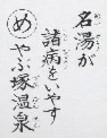 名湯が
諸病をいやす
め やぶ塚温泉